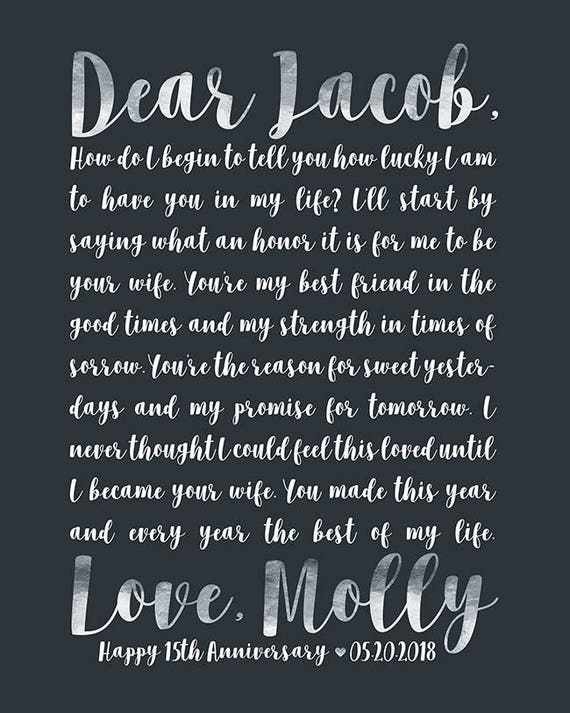 Dear Jacob,
How do I begin to tell you how lucky I am
to have you in my life? I'll start by
saying what an honor it is for me to be
your wife. You're my best friend in the
good times and my strength in times of
sorrow. You're the reason for sweet yester-
days and my promise for tomorrow. I
never thought I could feel this loved until
I became your wife. You made this year
and every year the best of my life.
Love, Molly
Happy 15th Anniversary ♥ 05.20.2018